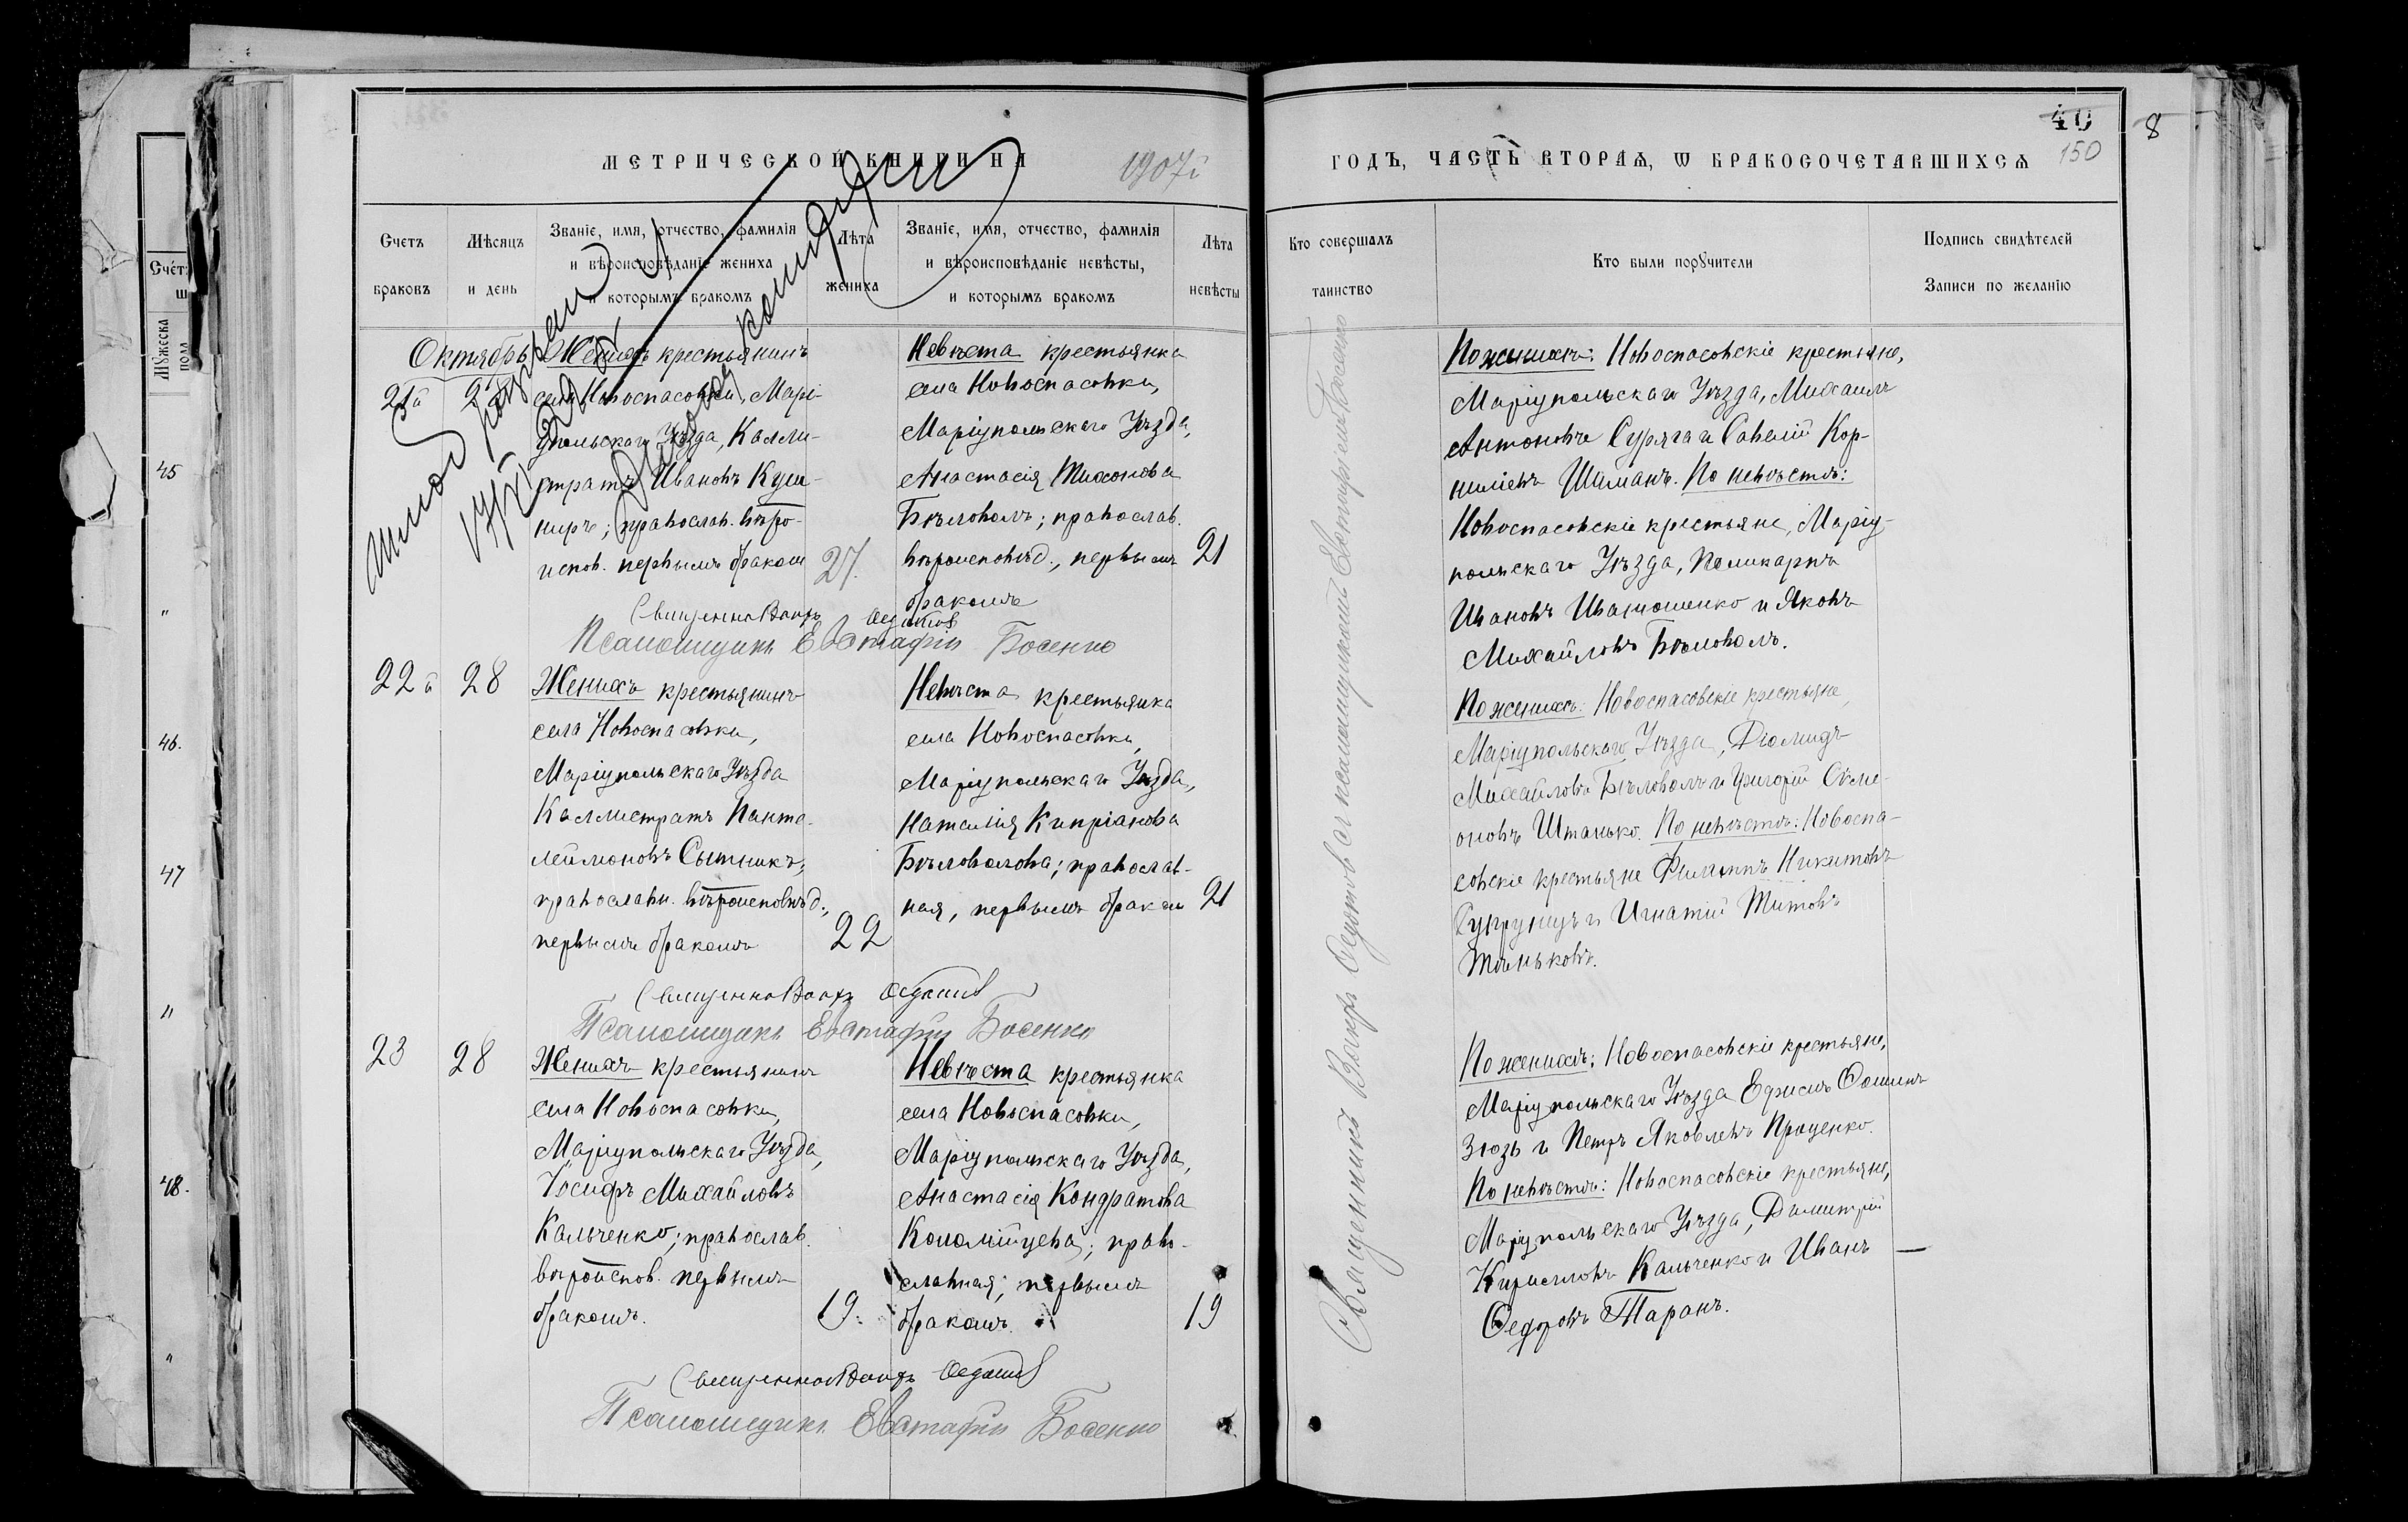 МЕТРИЧЕСКОЙ КНИГИ НА 1907й
ГОДЪ, ЧАСТЬ ВТОРАЯ, Ѡ БРАКОСОЧЕТАВШИХСЯ
40
150
8
Счетъ браковъ
Мѣсяцъ и день
Званіе, имя, отчество, фамилія
и вѣроисповѣданіе жениха
и которымъ бракомъ
Лѣта жениха
Званіе, имя, отчество, фамилія
и вѣроисповѣданіе невѣсты,
и которымъ бракомъ
Лѣта невѣсты
Кто совершалъ таинство
Кто были порꙋчители
Подпись свидѣтелей
Записи по желанію
Октябрь
21й
Женихъ крестьянинъ
села Новоспасовки, Марі-
упольскаго Уѣзда, Калли-
стратъ Ивановъ Куш-
ниръ; православ. вѣро-
испов. первымъ бракомъ
27.
Невѣста крестьянка
села Новоспасовки,
Маріупольскаго Уѣзда,
Анастасія Тихонова
Бѣловолъ; православ.
вѣроисповѣд., первымъ
бракомъ
21
По женихѣ: Новоспасовскіе крестьяне,
Маріупольскаго Уѣзда, Михаилъ
Антоновъ Суряга и Савелій Кор-
ниліевъ Шиманъ. По невѣстѣ:
Новоспасовскіе крестьяне, Маріу-
польскаго Уѣзда, Поликарпъ
Ивановъ Иваношенко и Яковъ
Михайловъ Бѣловолъ.
Псаломщикъ Евстафій Босенко
22й
28
Женихъ крестьянинъ
села Новоспасовки,
Маріупольскаго Уѣзда
Каллистратъ Панте-
леймоновъ Сытникъ;
православн. вѣроисповѣд.,
первымъ бракомъ
22
Невѣста крестьянка
села Новоспасовки,
Маріупольскаго Уѣзда,
Наталія Кипріанова
Бѣловолова; православ-
ная, первымъ бракомъ
21
По женихѣ: Новоспасовскіе крестьяне,
Маріупольскаго Уѣзда, Діомидъ
Михайловъ Бѣловолъ и Григорій Симе-
оновъ Штанько. По невѣстѣ: Новоспа-
совскіе крестьяне Филиппъ Никитовъ
Супрунецъ и Игнатій Титовъ
Псаломщикъ Евстафій Босенко
23
28
Женихъ крестьянинъ
села Новоспасовки,
Маріупольскаго Уѣзда,
Іосифъ Михайловъ
Кальченко; православ.
вѣроиспов. первымъ
бракомъ.
19.
Невѣста крестьянка
села Новоспасовки,
Маріупольскаго Уѣзда,
Анастасія Кондратова
Коломійцева; право-
славная; первымъ
бракомъ.
19
По женихѣ: Новоспасовскіе крестьяне,
Маріупольскаго Уѣзда Ефремъ Ѳоминъ
Зюзь и Петръ Яковлевъ Проценко.
По невѣстѣ: Новоспасовскіе крестьяне,
Маріупольскаго Уѣзда, Димитрій
Кирилловъ Кальченко и Иванъ
Ѳедоровъ Таранъ.
Псаломщикъ Евстафій Босенко
Счетъ
Мꙋжеска пола
45
"
46.
47
"
48.
"